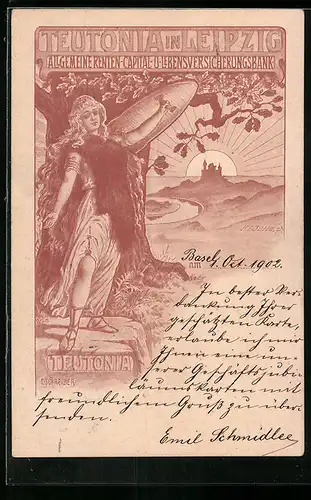 TEUTONIA IN LEIPZIG
ALLGEMEINE RENTEN-CAPITAL-U-LEBENSVERSICHERUNGSBANK
Basel,
am 1. Oct. 1902.
In bester Ver-
dankung Ihrer
geschätzten Karte,
erlaube ich mir
Ihnen eine un-
serer Geschäftsjubi-
läumskarten mit
freundlichem Gruß zu über-
senden.
Emil Schmidlee
TEUTONIA